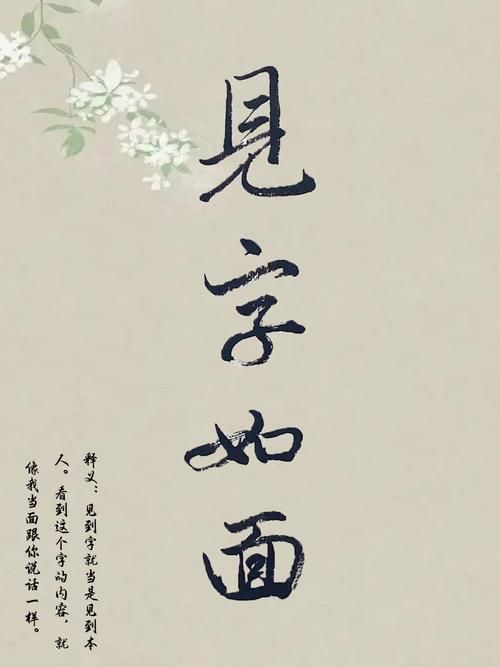 見字如面
释义：见到字就当是见到本
人。看到这个字的内容，就
像我当面跟你说话一样。